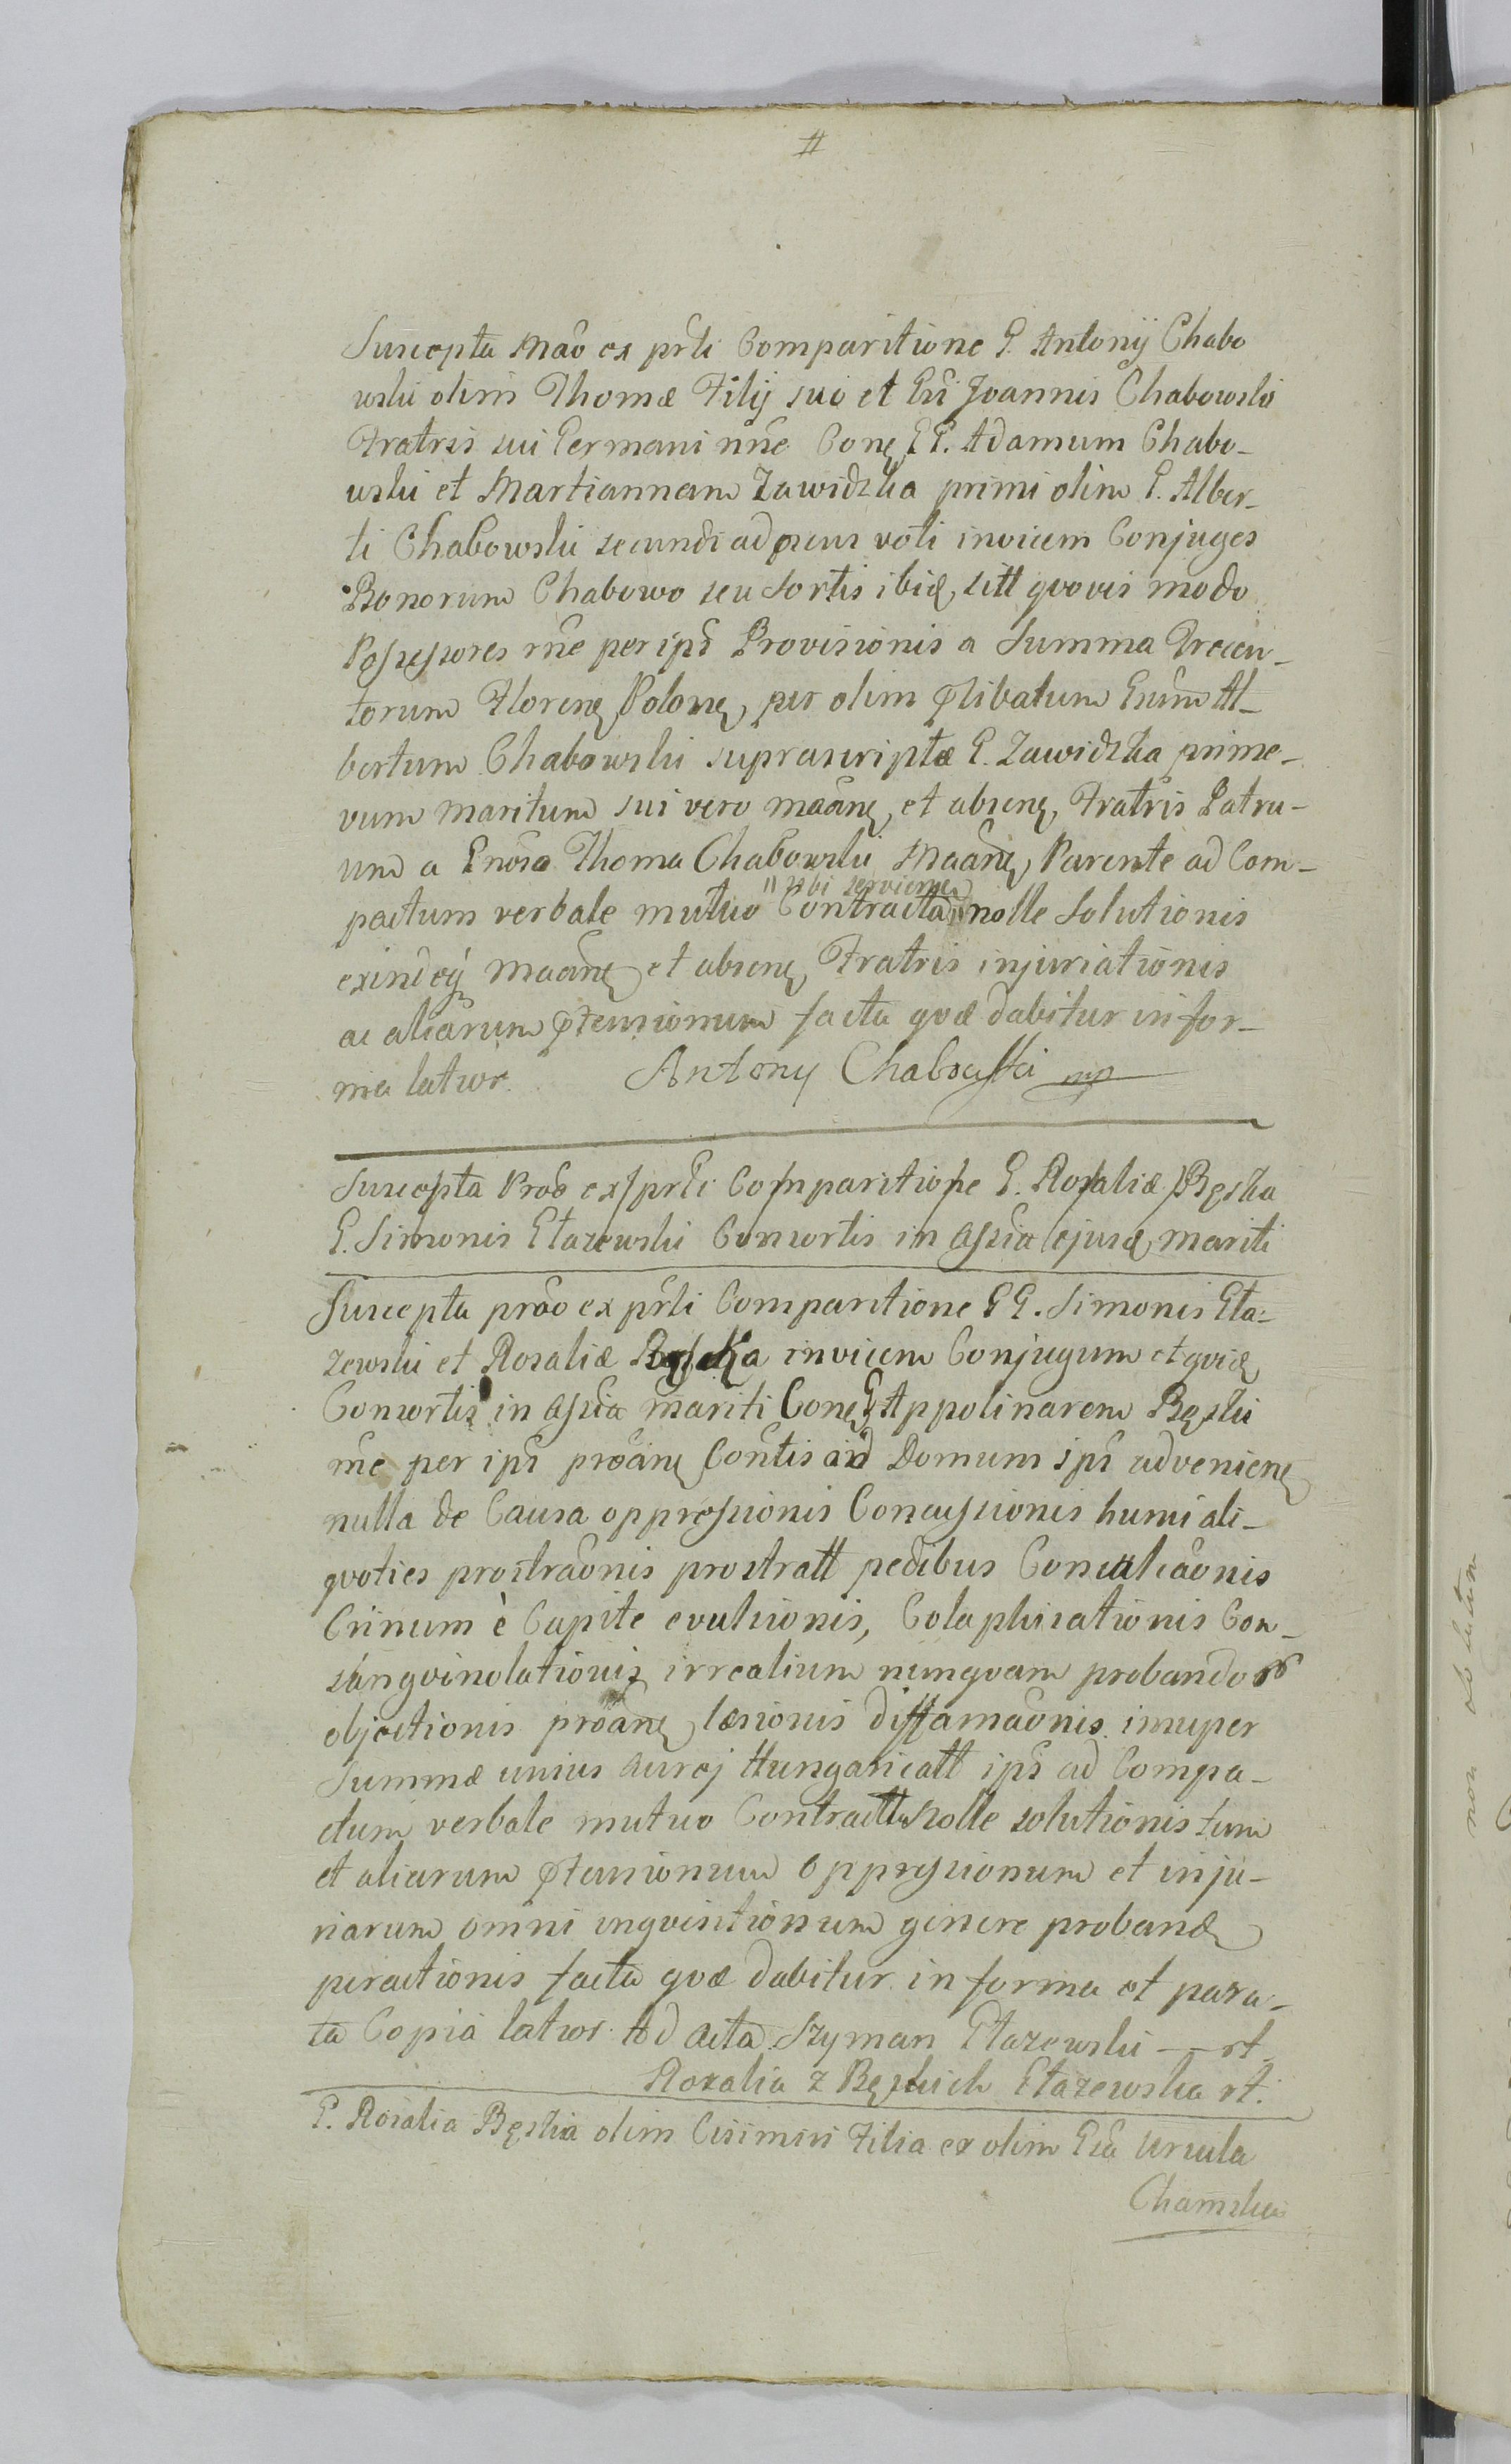 #
Suscepta Mão ex prti Comparitione G. Antonij Chabo
wski olim Thomæ Filij suo et Gsi Joannis Chabowski
Fratris sui Germani nñe Cong GG. Adamum Chabo-
wski et Martiannam Zawidzka primi olim G. Alber-
ti Chabowski secundi ad præns voti invicem Conjuges
Bonorum Chabowo seu Sortis ibid, sitt qvovis modo
Possessores rñe per ips Provisionis a Summa Trecen-
torum Floreng Polong, per olim plibatum Gsum Al-
bertum Chabowski suprascriptæ G. Zawidzka prime-
vum maritum sui vero maãng et abseng, Fratris Patru-
um a Gnoso Thoma Chabowski Maãng, Parente ad Com-
pactum verbale mutuo "sibi servieng" Contracta nolle Solutionis
exindeq maãng et abseng Fratris injuriationis
ac aliarum ptensionum facta qvæ dabitur in for-
ma latior. Antony Chabowski mp
Suscepta Proõ ex prti Comparitione G. Rosaliæ Bęska
G. Simonis Głazewski Consortis in assia ejusd, mariti
Suscepta prão ex prti Comparitione GG. Simonis Gła-
zewski et Rosaliæ Bęska invicem Conjugum et qvid,
Consortis in assia mariti Cong G Appolinarem Bęski
rñe per ips proãng Contis in Domum ips advenieng
nulla de Causa oppressionis Concussionis humi ali-
qvoties prostraõnis prostratt pedibus Conculcaõnis
Crinum è Capite evulsionis, Colaphisationis Con-
sangvinolationis irrealium nunqvam probandor
objectionis proãng læsionis diffamaõnis insuper
Summæ unius Aurej Hungaricatt ips ad Compa-
ctum verbale mutuo Contracttæ nolle solutionis tum
et aliarum ptensionum oppressionum et inju-
riarum omni inqvisitionum genere proband,
peractionis facta qvæ dabitur in forma et para-
ta Copia latior. Ad Acta Szyman Głazewski — rt.
Rozalia z Bęskich Głazewska rt.
G. Rosalia Bęska olim Casimiri Filia ex olim Gsa Ursula
Chamska